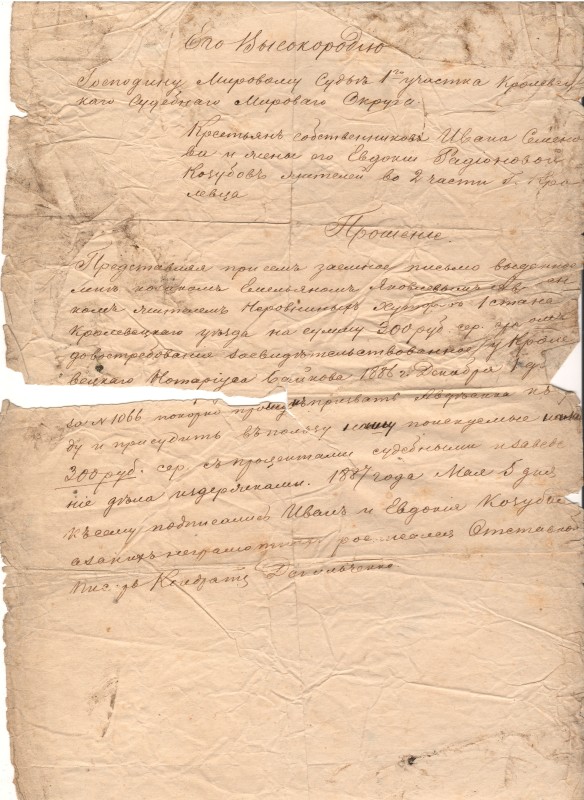 Его Высокородію
Господину Мировому Судьѣ 1го участка Кролевец
каго Судебнаго Мироваго Округа.
Крестьян собственников Ивана Семено
ва и жены его Евдокіи Радіоновой
Козубовъ жителей во 2 части г. Кро
левца
Прошеніе.
Представляя присемъ заемное письмо выданное
намъ козакомъ Емельяномъ
комъ жителемъ Хуторовъ 1 стана
Кролевецкаго уѣзда на сумму 300 руб. сер.
довостребованія засвидѣтельствованное у Кроле
вецкаго Нотаріуса Сайкова 1886 г. Декабря
за № 1066 покорно просимъ призвать къ
ду и присудить въ пользу нашу поискуемые
300 руб. сер. съ процентами судебными и заведе
ніе дѣла издержками. 1887 года Мая 5 дня
къ сему подписались Иванъ и Евдокія Козубы
а за нихъ неграмотныхъ росписался Отставной
Писарь